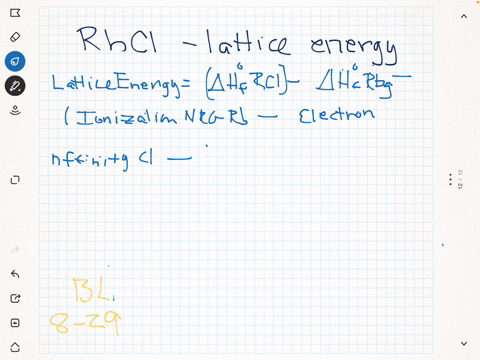 RbCl - lattice energy
Lattice Energy = (ΔH°f RCl) - ΔH°f Rbg -
(Ionization NRG Rb - Electron
nffinity Cl -
BL
8-29
12 / 12